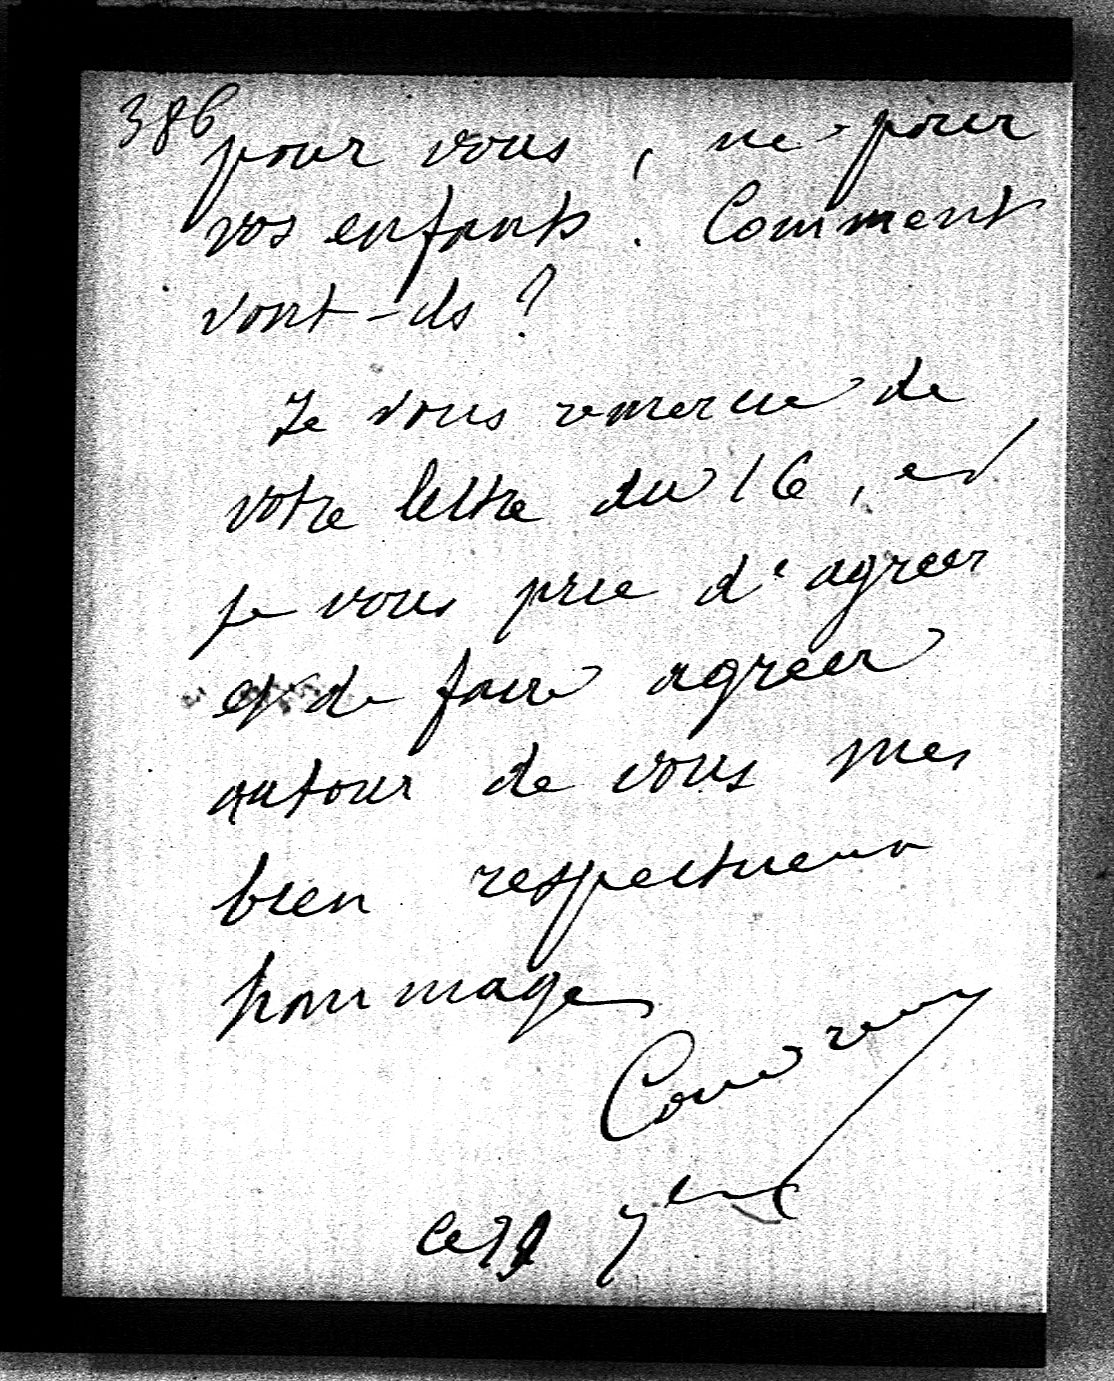 386
pour vous, ne pour
vos enfants. Comment
vont-ils ?
Je vous remercie de
votre lettre du 16, et
je vous prie d'agréer
et de faire agréer
autour de vous mes
bien respectueux
hommages
Ce